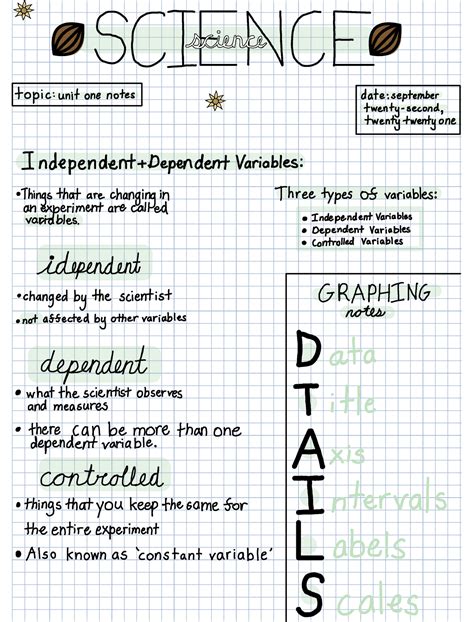 SCIENCE
science
topic: unit one notes
date: september
twenty-second,
twenty-twenty one
Independent+Dependent Variables:
•Things that are changing in
an experiment are called
variables.
Three types of variables:
• Independent Variables
• Dependent Variables
• Controlled Variables
idependent
•changed by the scientist
•not affected by other variables
dependent
• what the scientist observes
and measures
• there can be more than one
dependent variable.
controlled
•things that you keep the same for
the entire experiment
• Also known as 'constant variable'
GRAPHING
notes
Data
Title
Axis
Intervals
Labels
Scales